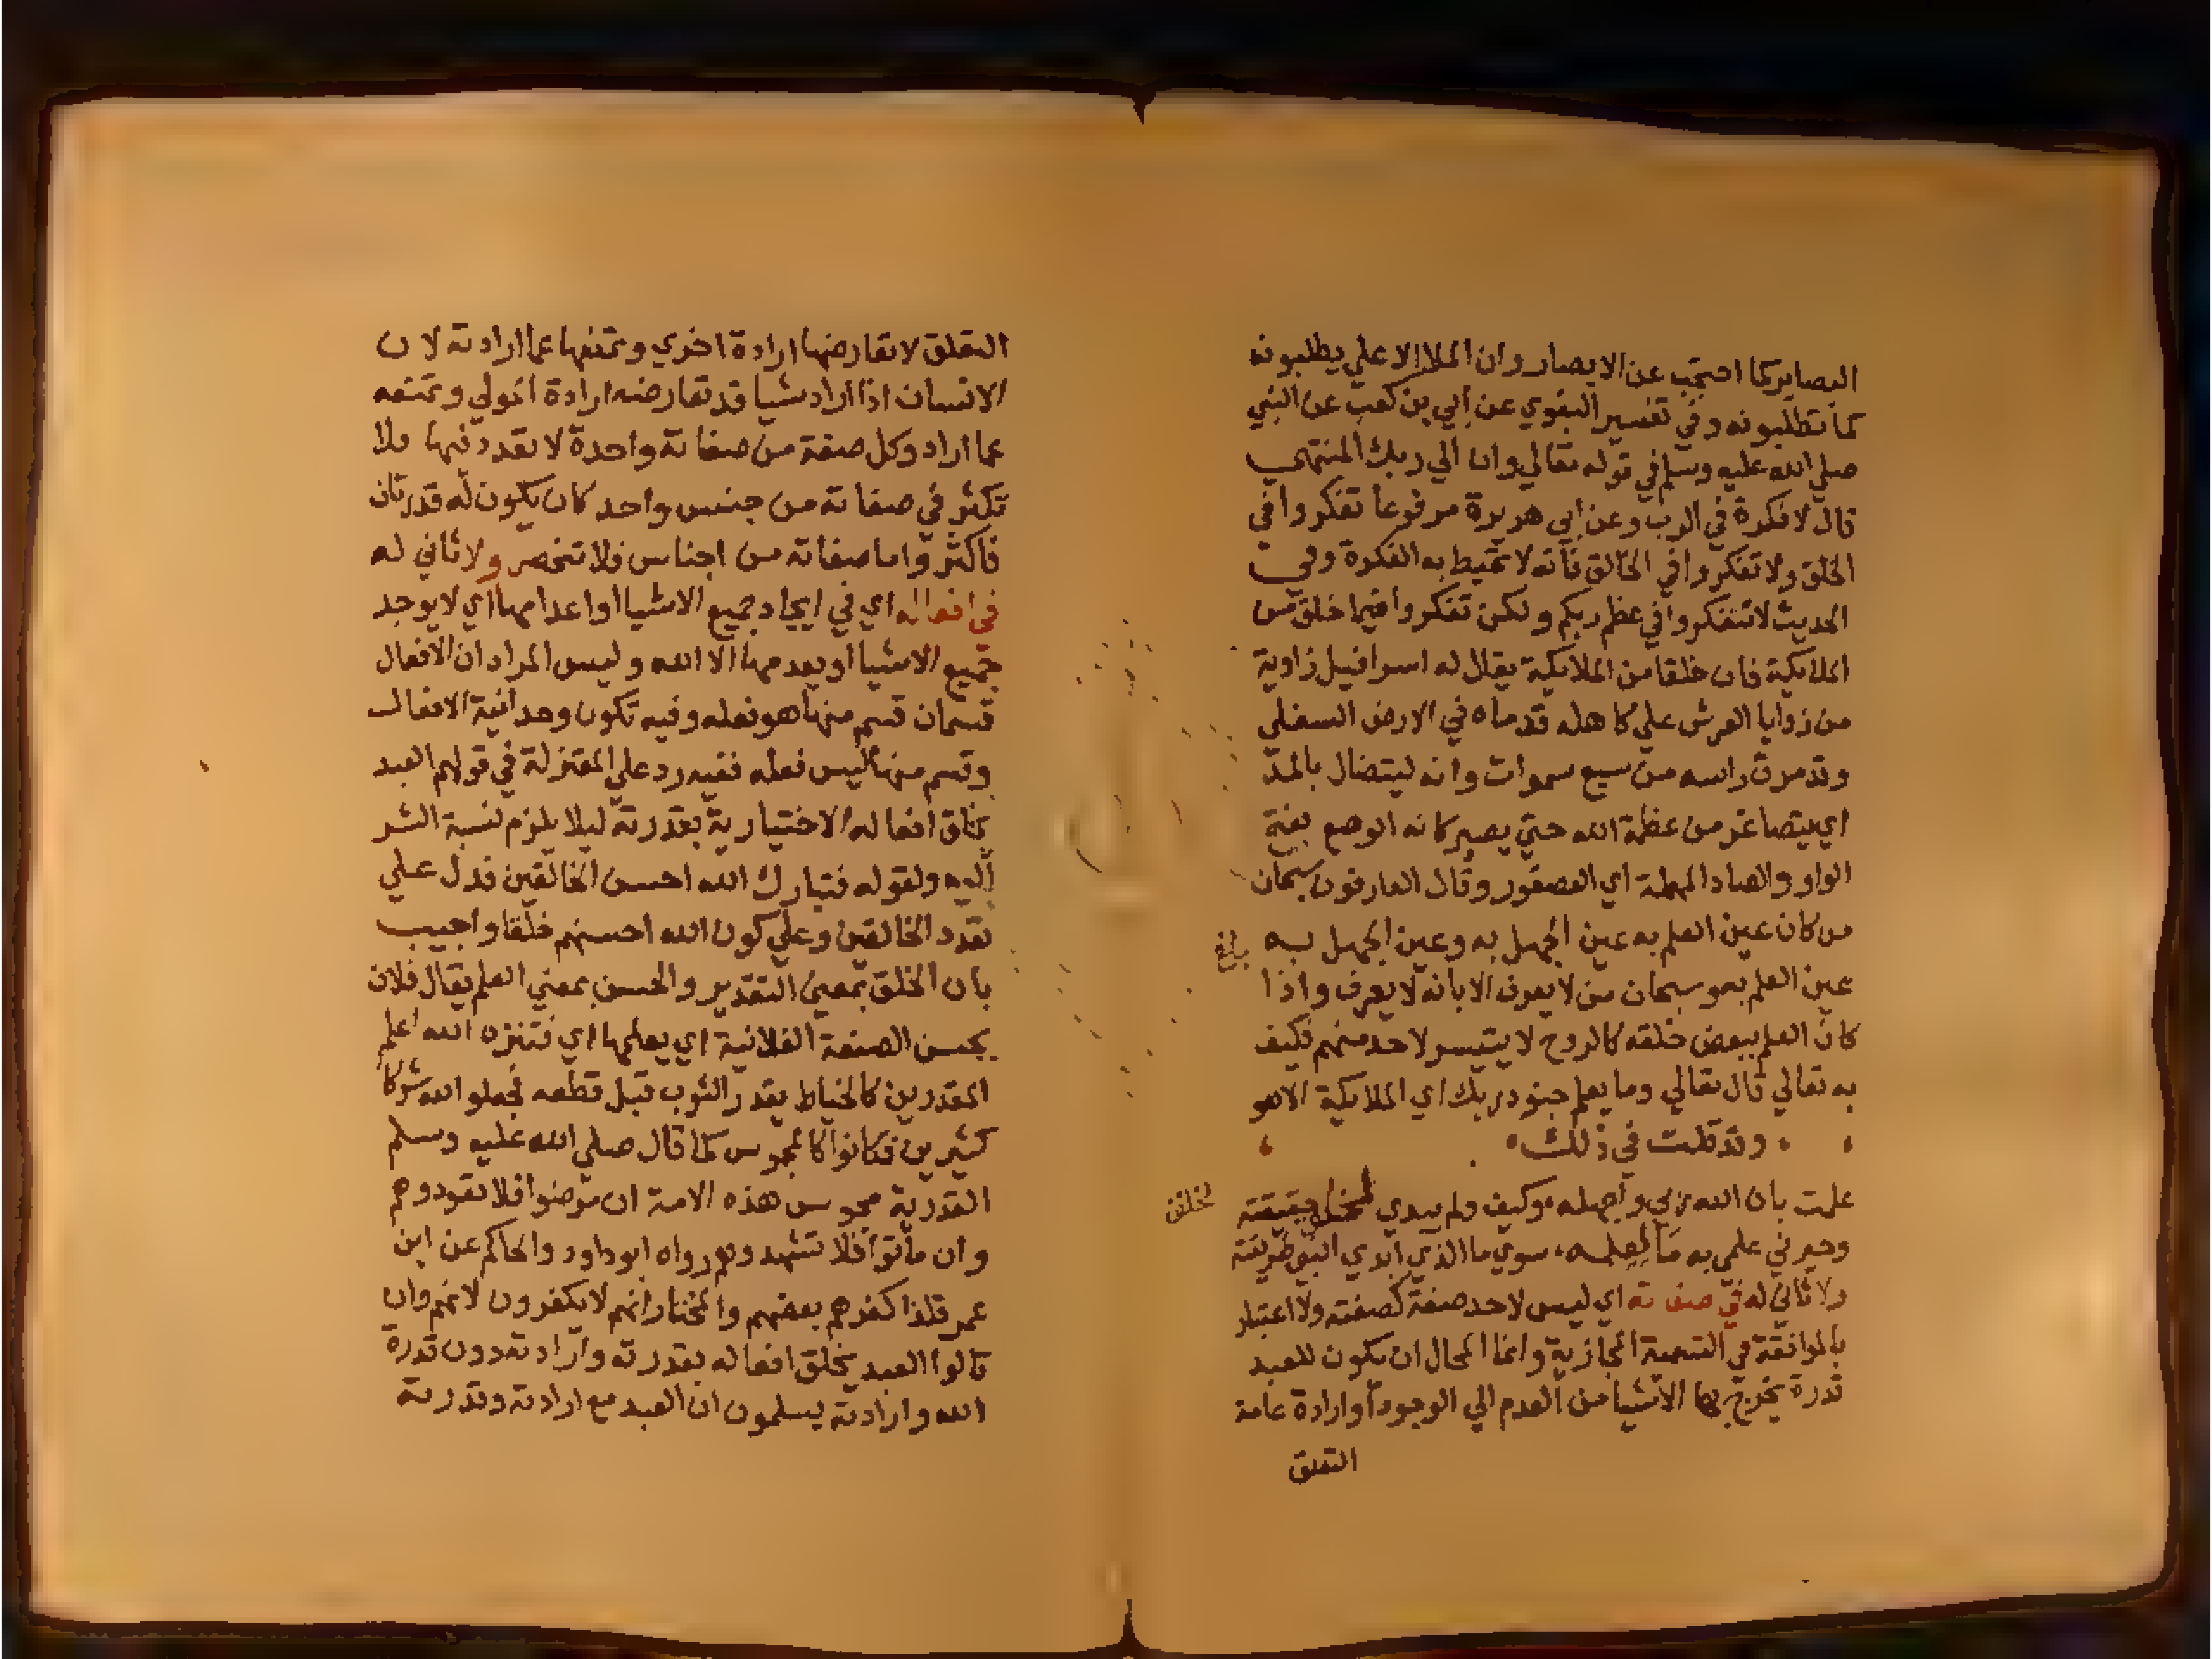 البصاير كما احتجب عن الابصار وان الملا الاعلي يطلبونه
كما تطلبونه وفي تفسير البغوي عن ابي بن كعب عن النبي
صلي الله عليه وسلم في قوله تعالي وان الي ربك المنتهي
قال لا فكرة في الرب وعن ابي هريرة مرفوعا تفكروا في
الخلق ولا تفكروا في الخالق فانه لا تحيط به الفكرة وفي
الحديث لا تتفكروا في عظم ربكم ولكن تفكروا فيما خلق من
الملايكة فان خلقا من الملايكة يقال له اسرافيل زاوية
من زوايا العرش علي كاهله قدماه في الارض السفلي
وقد مرق راسه من سبع سموات وانه ليتضال بالمد
اي يتصاغر من عظمة الله حتي يصير كانه الوصع بفتح
الواو والصاد المهملة اي العصفور وقال العارفون سبحان
من كان عين العلم به عين الجهل به وعين الجهل به
عين العلم به وسبحان من لا يعرف الا بانه لا يعرف واذا
كان العلم ببعض خلقه كالروح لا يتيسر لاحد منهم فكيف
به تعالي قال تعالي وما يعلم جنود ربك اي الملايكة الا هو
وقد قلت في ذلك
علمت بان الله ربي واجهله وكيف ولم يبدي لخلق حقيقته
وحيرني علمي به ما لعله سوي ما الذي ابدي النبي طريقته
ولا ثاني له في صفاته اي ليس لاحد صفة كصفته ولا اعتبار
بالموافقة في التسمية المجازية وانما المحال ان يكون للعبد
قدرة يخرج بها الاشيا من العدم الي الوجود او ارادة عامة
التعلق
بلغ
لخلق
التعلق لا تعارضها ارادة اخري وتمنعها عما ارادته لان
الانسان اذا اراد شيا قد تعارضه ارادة المولي وتمنعه
عما اراد وكل صفة من صفاته واحدة لا تعدد فيها فلا
تكثر في صفاته من جنس واحد كان يكون له قدرتان
فاكثر واما صفاته من اجناس فلا تنحصر ولا ثاني له
في افعاله اي في ايجاد جميع الاشيا او اعدامها اي لا يوجد
جميع الاشيا او يعدمها الا الله وليس المراد ان الافعال
قسمان قسم منها هو فعله وفيه تكون وحدانية الافعال
وقسم منها ليس فعله ففيه رد علي المعتزلة في قولهم العبد
يخلق افعاله الاختيارية بقدرته ليلا يلزم نسبة الشر
اليه ولقوله فتبارك الله احسن الخالقين فدل علي
تعدد الخالقين وعلي كون الله احسنهم خلقا واجيب
بان الخلق بمعني التقدير والحسن بمعني العلم يقال فلان
يحسن الصنعة الفلانية اي يعلمها اي فتنزه الله اعلم
المقدرين كالخياط يقدر الثوب قبل قطعه فجعلوا لله شركا
كثيرين فكانوا كالمجوس كما قال صلي الله عليه وسلم
القدرية مجوس هذه الامة ان مرضوا فلا تعودوهم
وان ماتوا فلا تشهدوهم رواه ابو داود والحاكم عن ابن
عمر فلذا كفرهم بعضهم والمختار انهم لا يكفرون لانهم وان
قالوا العبد يخلق افعاله بقدرته وارادته دون قدرة
الله وارادته يسلمون ان العبد مع ارادته وقدرته